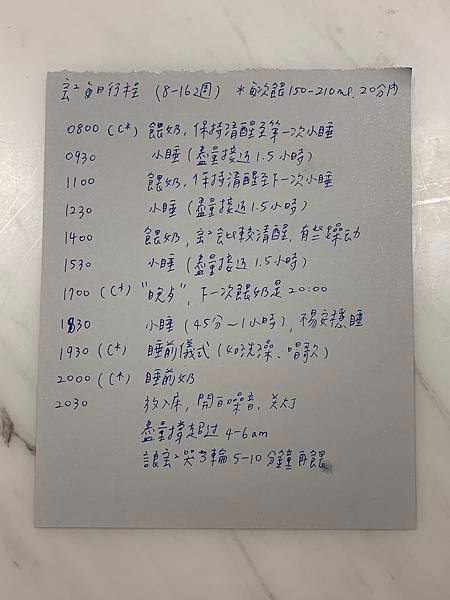 宏² 每日行程 (8-16週) *每次餵150-210ml, 20分內
0800 (C*) 餵奶, 保持清醒至第一次小睡
0930 小睡 (盡量接近1.5小時)
1100 餵奶, 保持清醒至下一次小睡
1230 小睡 (盡量接近1.5小時)
1400 餵奶, 宏²比較清醒, 有些躁动
1530 小睡 (盡量接近1.5小時)
1700 (C*) "晚歺", 下一次餵奶是20:00
1830 小睡 (45分~1小時), 易安穩睡
1930 (C*) 睡前儀式 (如洗澡、唱歌)
2000 (C*) 睡前奶
2030 放入床, 開白噪音, 关灯
盡量撐超过 4-6am
讓宏²哭3輪 5-10分鐘再餵